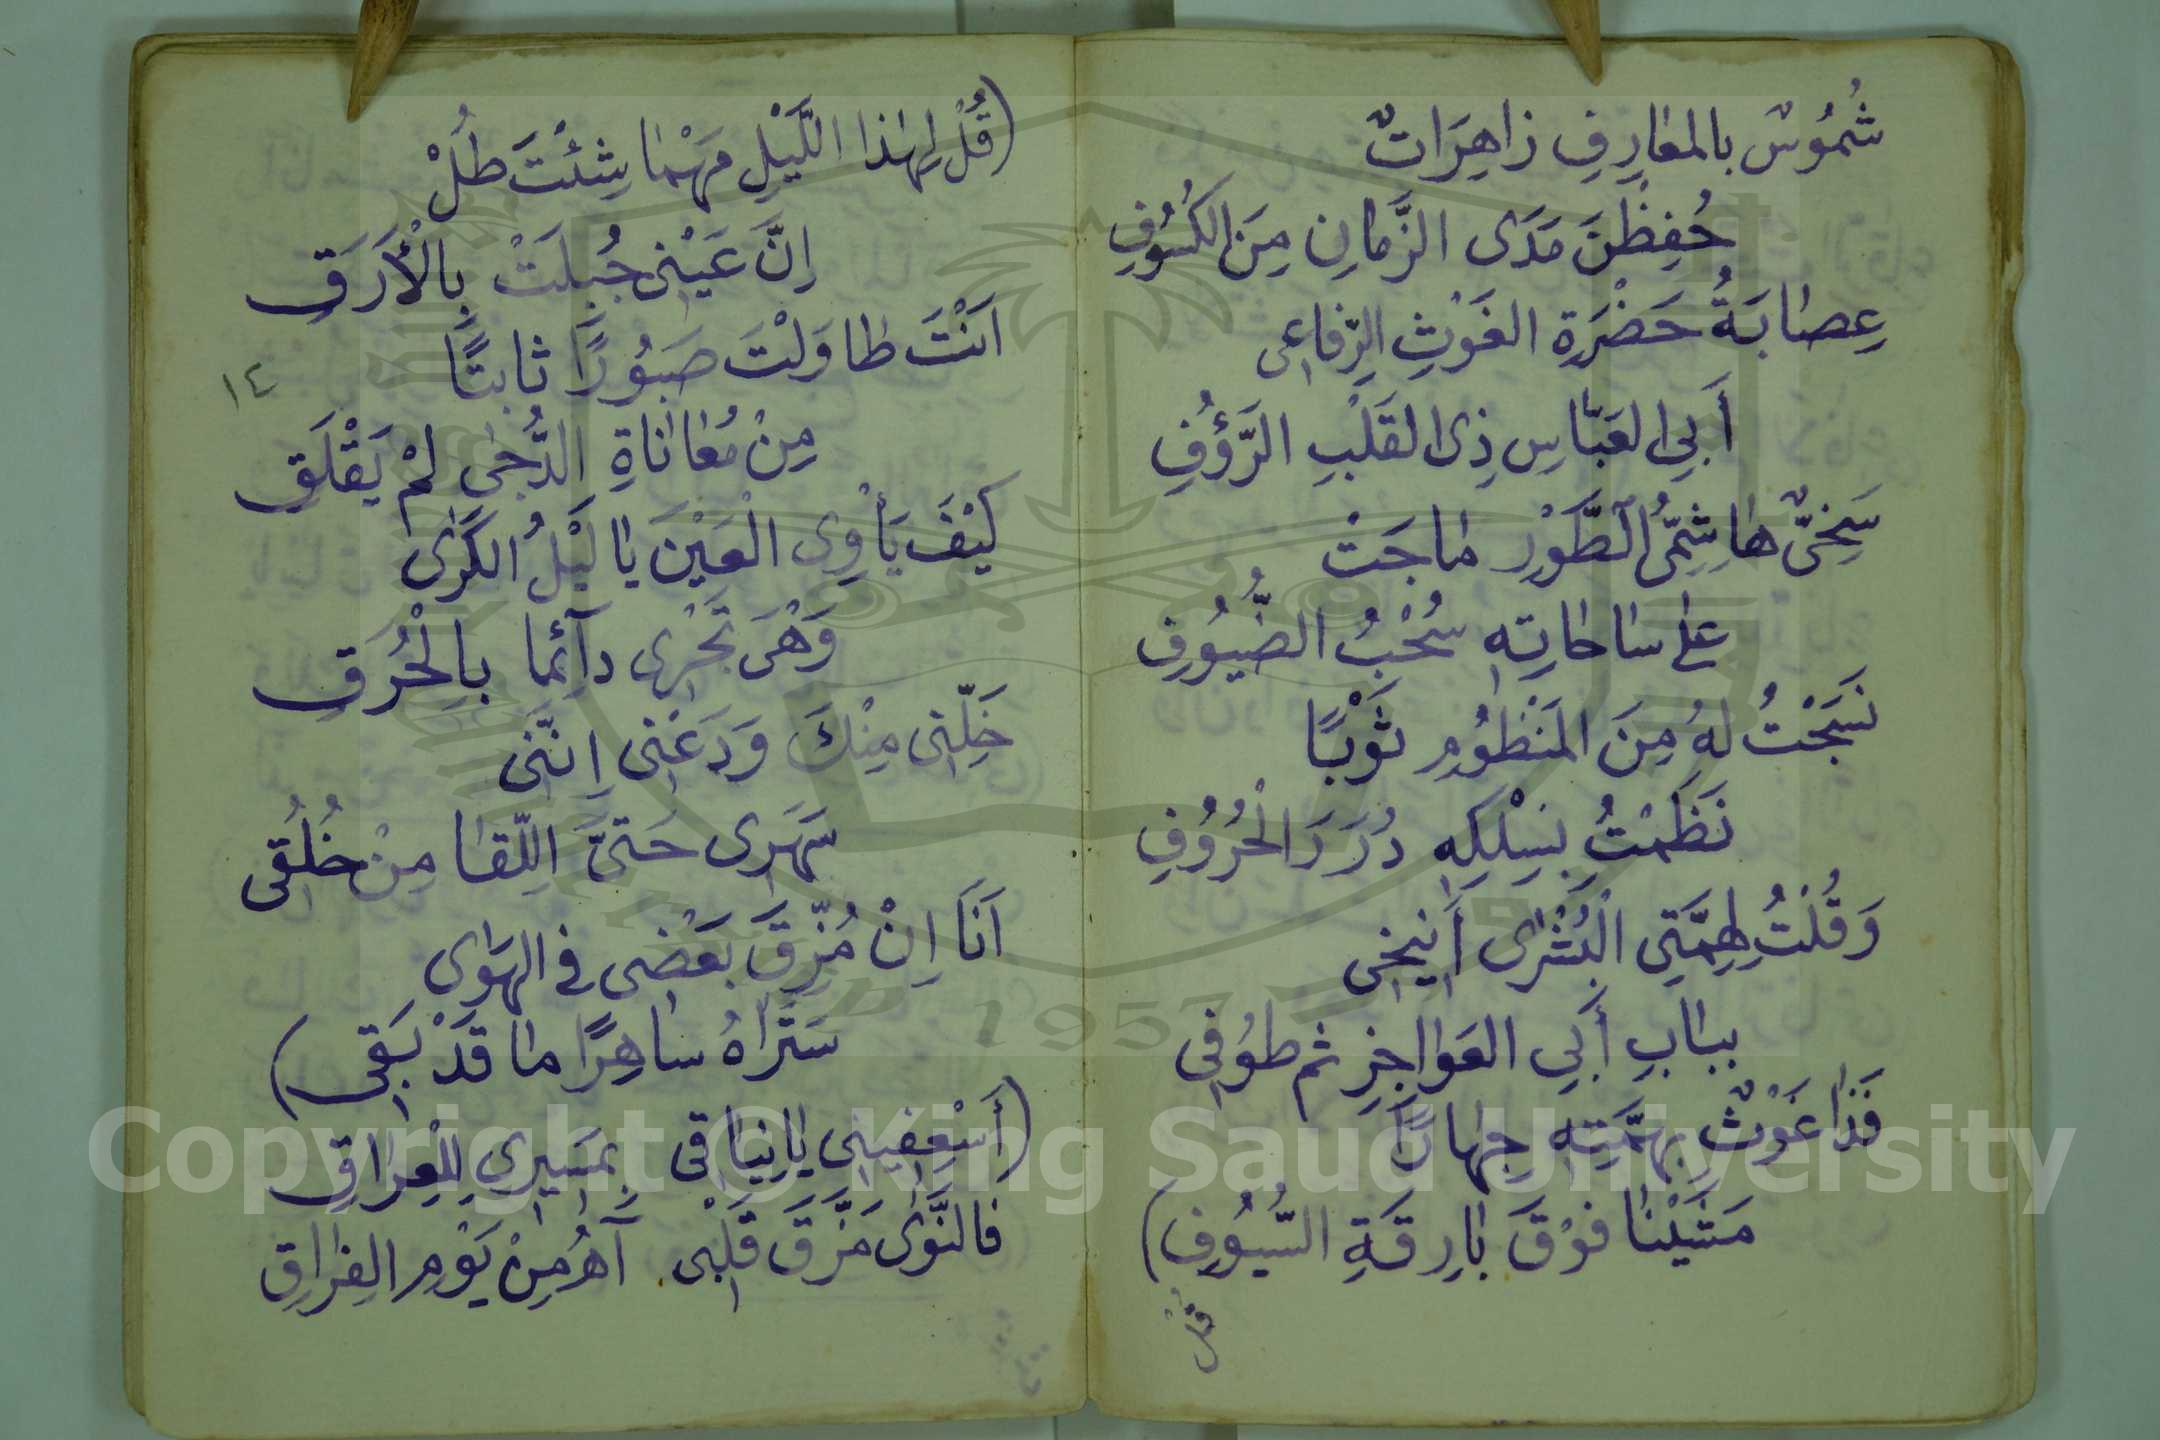 شُمُوُسٌ بالمعَارِفِ زاهِرَاتٌ
حُفِظْنَ مَدَى الزَّمَانِ مِنَ الكُسُوُفِ
عِصَابَةُ حَضْرَةِ الغَوْثِ الرِّفاعِى
أَبِى العَبّاسِ ذِى القَلْبِ الرَّؤُفِ
سَخِىٌّ هاشِمِىُّ الطَّوْرِ مَاجَتْ
عَلى سَاحَاتِهِ سُحْبُ الضُّيُوُفِ
نَسَجْتُ لهُ مِنَ المَنْظُوُمِ ثَوْبًا
نَظَمْتُ بِسِلْكِهِ دُرَرَ الْحُرُوُفِ
وَقُلْتُ لِهِمَّتِى الْبُشْرَى أَنِيخِى
ببَابِ أَبِى العَوَاجِزِ ثم طوُفِى
فَذَا غَوْثٌ بِهِمَّتِهِ جِهَارًا
مَشَيْنَا فوْقَ بَارِقَةِ السُّيُوُفِ)
قل
(قُلْ لِهٰذا اللَّيْلِ مَهْمَا شِئْتَ طُلْ
اِنَّ عَيْنِى جُبِلَتْ بِالْأَرَقِ
اَنْتَ طاوَلْتَ صَبُوُرًا ثابتًا
١٤
مِنْ مُعَانَاةِ الدُّجَى لمْ يَقْلَقِ
كَيْفَ يَأْوِى الْعَيْنَ يَا لَيْلُ الكَرَى
وَهْىَ تَجْرِى دآئِما بِالْحُرَقِ
خَلِّنِى مِنْكَ وَدَعْنِى اِنَّنِى
سَهَرِى حَتىَّ اللِّقَا مِنْ خُلُقِى
اَنَا اِنْ مُزِّقَ بَعْضِى فى الهَوَى
سَتَرَاهُ سَاهِرًا مَا قَدْ بَقِى)
(أَسْعِفِينِى يَا نِيَاقِى بِمَسِيرِى لِلْعِرَاقِ
فالنَّوَى مَزَّقَ قَلْبِى آهُ مِنْ يَوْمِ الفِرَاقِ
Copyright © King Saud University
1957